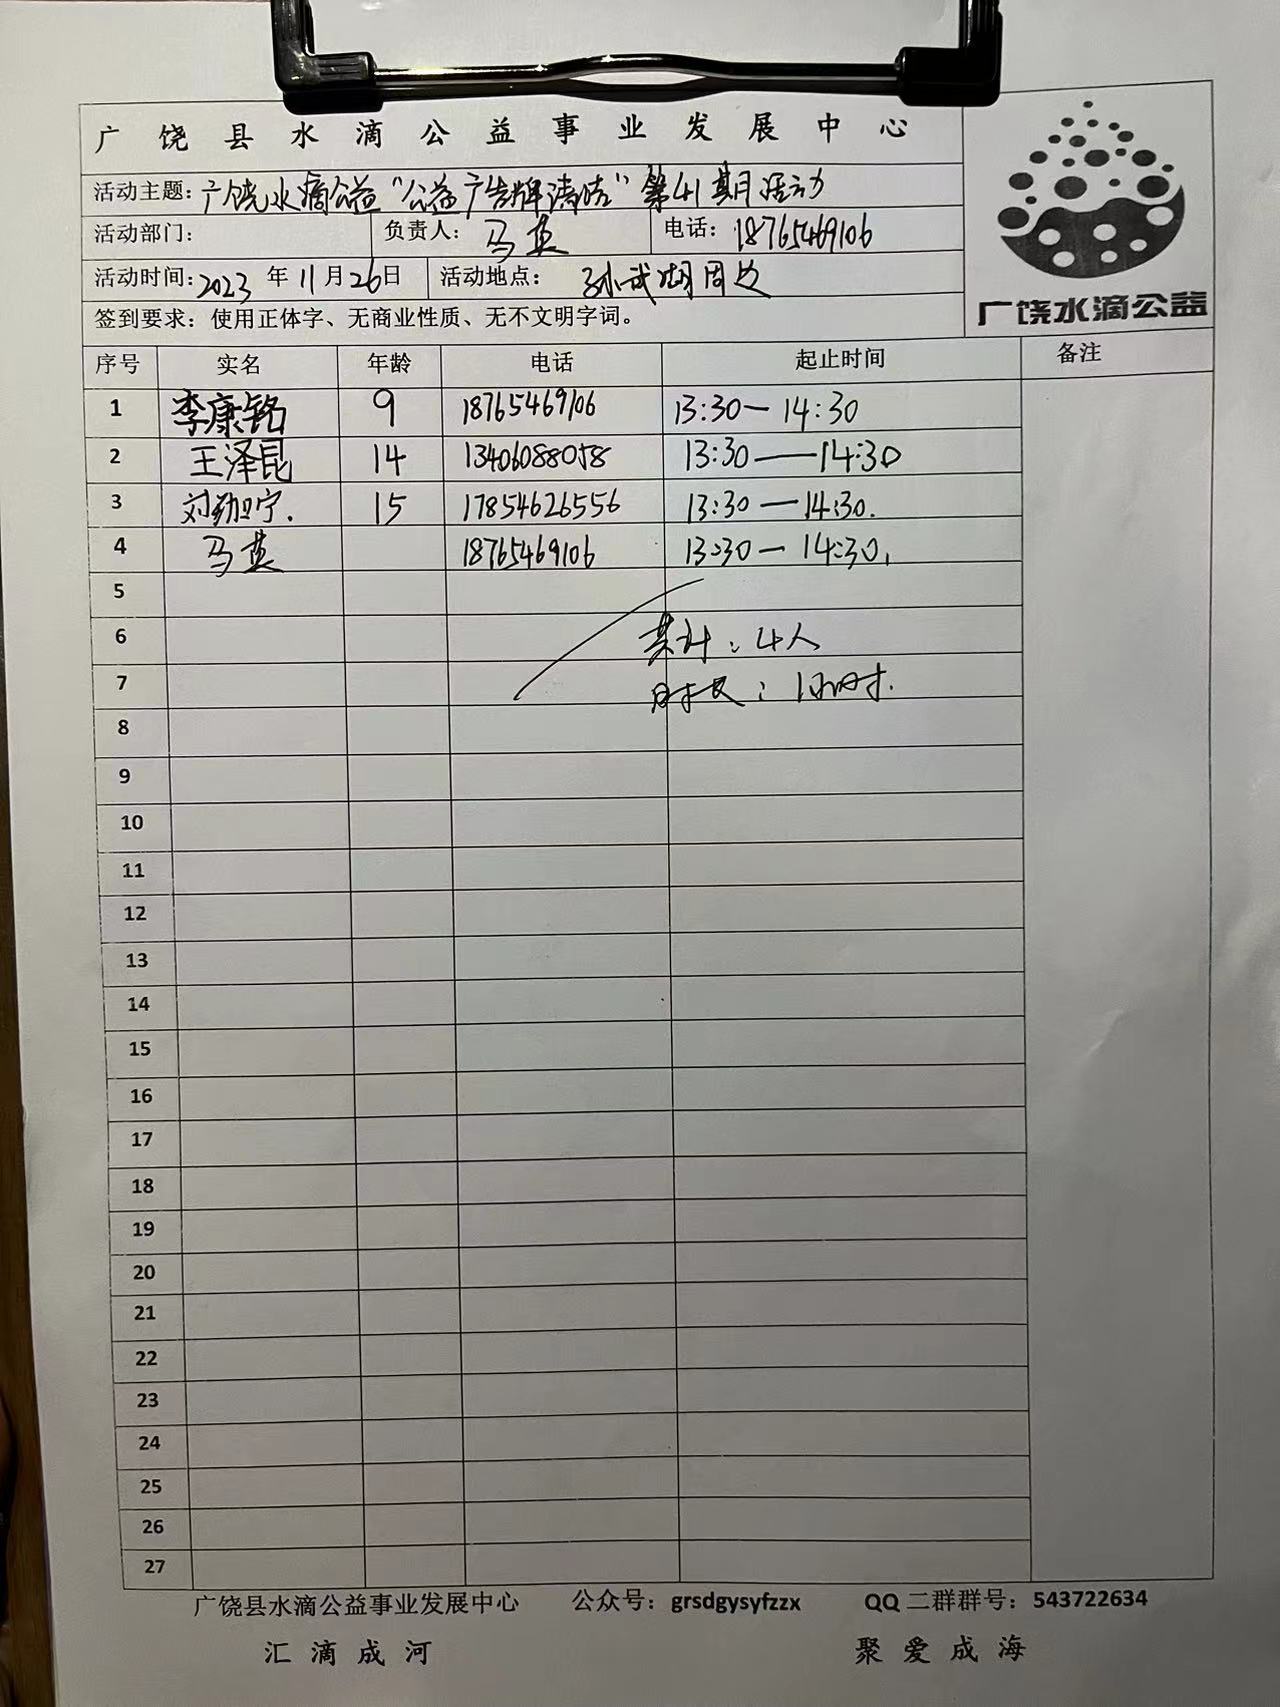 广饶县水滴公益事业发展中心
活动主题：广饶水滴公益“公益广告牌清洁”第41期活动
活动部门： 负责人：马英 电话：18765469106
活动时间：2023年11月26日 活动地点：孙武湖周边
签到要求：使用正体字、无商业性质、无不文明字词。
广饶水滴公益
序号 实名 年龄 电话 起止时间 备注
1 李康铭 9 18765469106 13:30—14:30
2 王泽昆 14 13406088058 13:30——14:30
3 刘劲宁. 15 17854626556 13:30—14:30.
4 马英 18765469106 13:30—14:30.
5
6 共计：4人
7 时长：1小时.
8
9
10
11
12
13
14
15
16
17
18
19
20
21
22
23
24
25
26
27
广饶县水滴公益事业发展中心 公众号：grsdgysyfzzx QQ二群群号：543722634
汇滴成河 聚爱成海